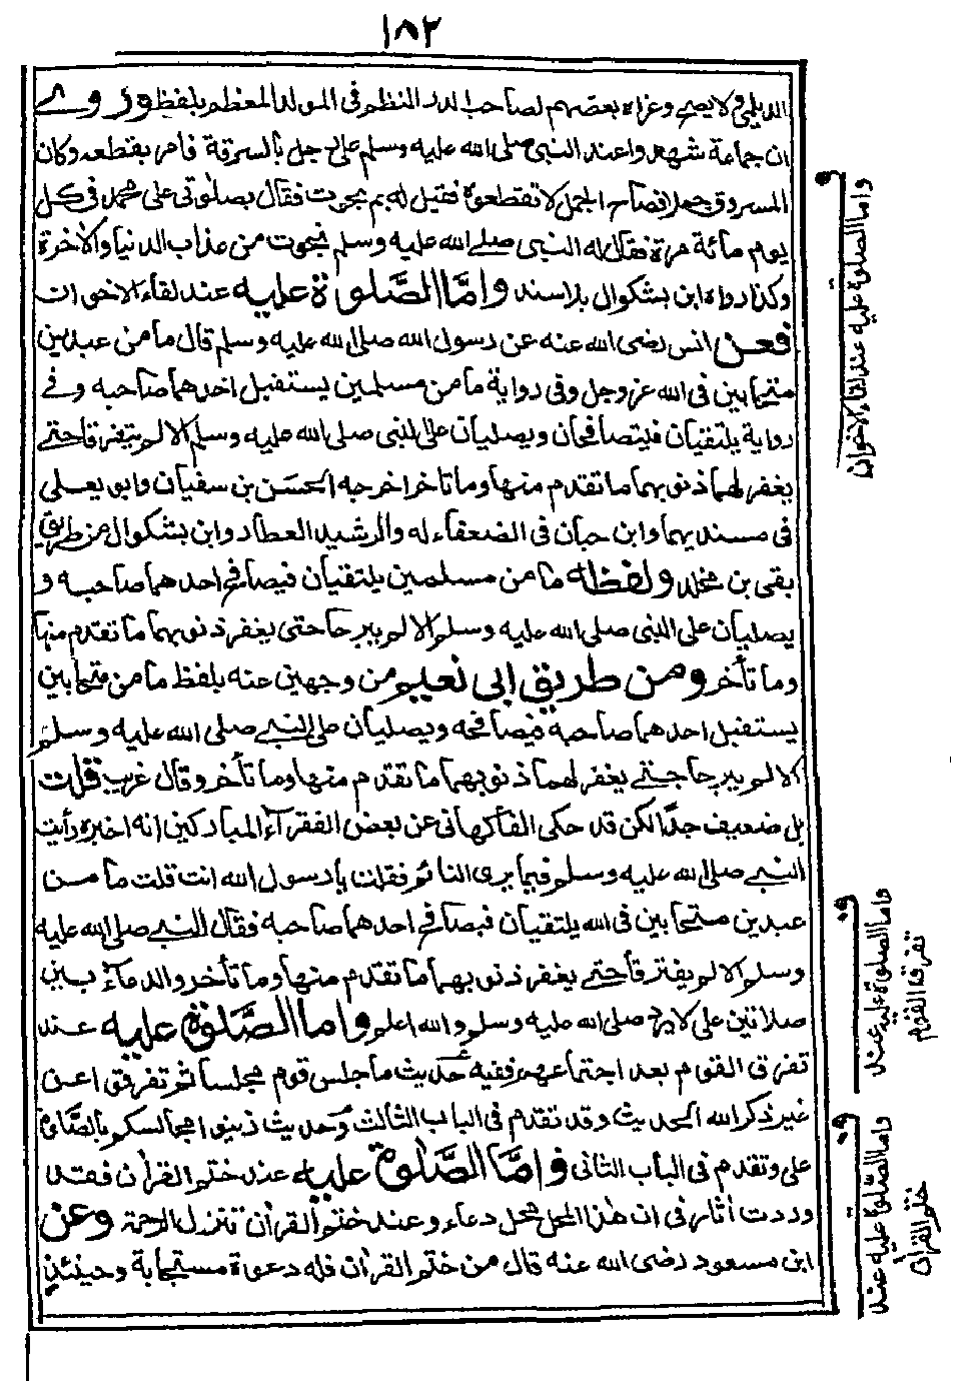 ١٨٢
الديلمي ولا يصح وعزاه بعضهم لصاحب الدر المنظم في المولد المعظم بلفظ وروى
ان جماعة شهدوا عند النبي صلى الله عليه وسلم على رجل بالسرقة فامر بقطعه وكان
المسروق جملا فصاح الجمل لا تقطعوه فقيل له بم نجوت فقال بصلوتي على محمد في كل
يوم مائة مرة فقال له النبي صلى الله عليه وسلم نجوت من عذاب الدنيا والاخرة
وكذا رواه ابن بشكوال بلا سند واما الصلوة عليه عند لقاء الاخوان
فعن انس رضى الله عنه عن رسول الله صلى الله عليه وسلم قال ما من عبدين
متحابين في الله عز وجل وفي رواية ما من مسلمين يستقبل احدهما صاحبه وفي
رواية يلتقيان فيتصافحان ويصليان على النبي صلى الله عليه وسلم الا لم يتفرقا حتى
يغفر لهما ذنوبهما ما تقدم منها وما تاخر اخرجه الحسن بن سفيان وابو يعلى
في مسنديهما وابن حبان في الضعفاء له والرشيد العطار وابن بشكوال من طريق
بقي بن مخلد ولفظه ما من مسلمين يلتقيان فيصافح احدهما صاحبه و
يصليان على النبي صلى الله عليه وسلم الا لم يبرحا حتى يغفر ذنوبهما ما تقدم منها
وما تأخر ومن طريق ابي نعيم من وجهين عنه بلفظ ما من متحابين
يستقبل احدهما صاحبه فيصافحه ويصليان على النبي صلى الله عليه وسلم
الا لم يبرحا حتى يغفر لهما ذنوبهما ما تقدم منها وما تأخر وقال غريب قلت
بل ضعيف جدا لكن قد حكى الفاكهاني عن بعض الفقراء المباركين انه اخبره رأيت
النبي صلى الله عليه وسلم فيما يرى النائم فقلت يا رسول الله انت قلت ما من
عبدين متحابين في الله يلتقيان فيصافح احدهما صاحبه فقال النبي صلى الله عليه
وسلم الا لم يفترقا حتى يغفر ذنوبهما ما تقدم منها وما تأخر والدعاء بين
صلاتين على لا يرد صلى الله عليه وسلم والله اعلم واما الصلوة عليه عند
تفرق القوم بعد اجتماعهم ففيه حديث ما جلس قوم مجلسا ثم تفرقوا عن
غير ذكر الله الحديث وقد تقدم في الباب الثالث وحديث زينوا مجالسكم بالصلوة
على وتقدم في الباب الثاني واما الصلوة عليه عند ختم القران فقد
وردت اثار في ان هذا المحل محل دعاء وعند ختم القران تتنزل الرحمة وعن
ابن مسعود رضى الله عنه قال من ختم القران فله دعوة مستجابة وحينئذ
واما الصلوة عليه عند لقاء الاخوان
واما الصلوة عليه عند
تفرق القوم
واما الصلوة عليه عند
ختم القران